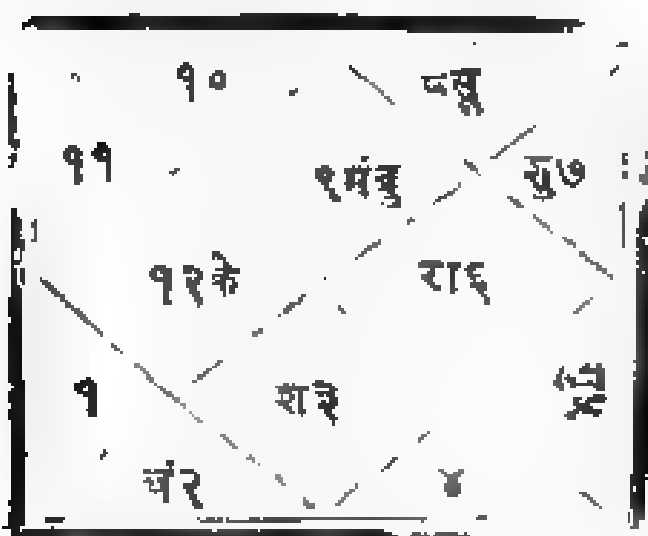 १० ८सू
११ ९मंबु शु७
१२के रा६
१ श३
चं२ ४